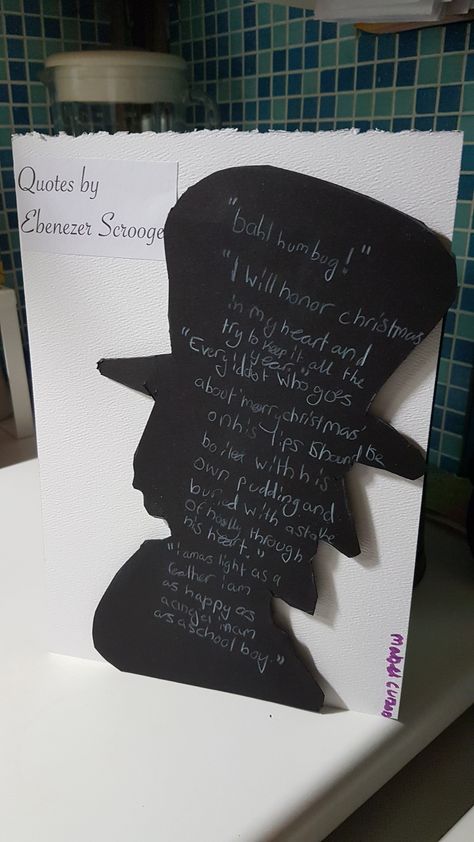 Quotes by
Ebenezer Scrooge
"bah! humbug!"
"I will honor christmas
in my heart and
try to keep it all the
year."
"Every iddot who goes
about merry christmas
on his lips shound be
boiled with his
own pudding and
buried with a stake
of holly through
his heart."
"i am as light as a
feather i am
as happy as
a angel i mam
as a school boy"